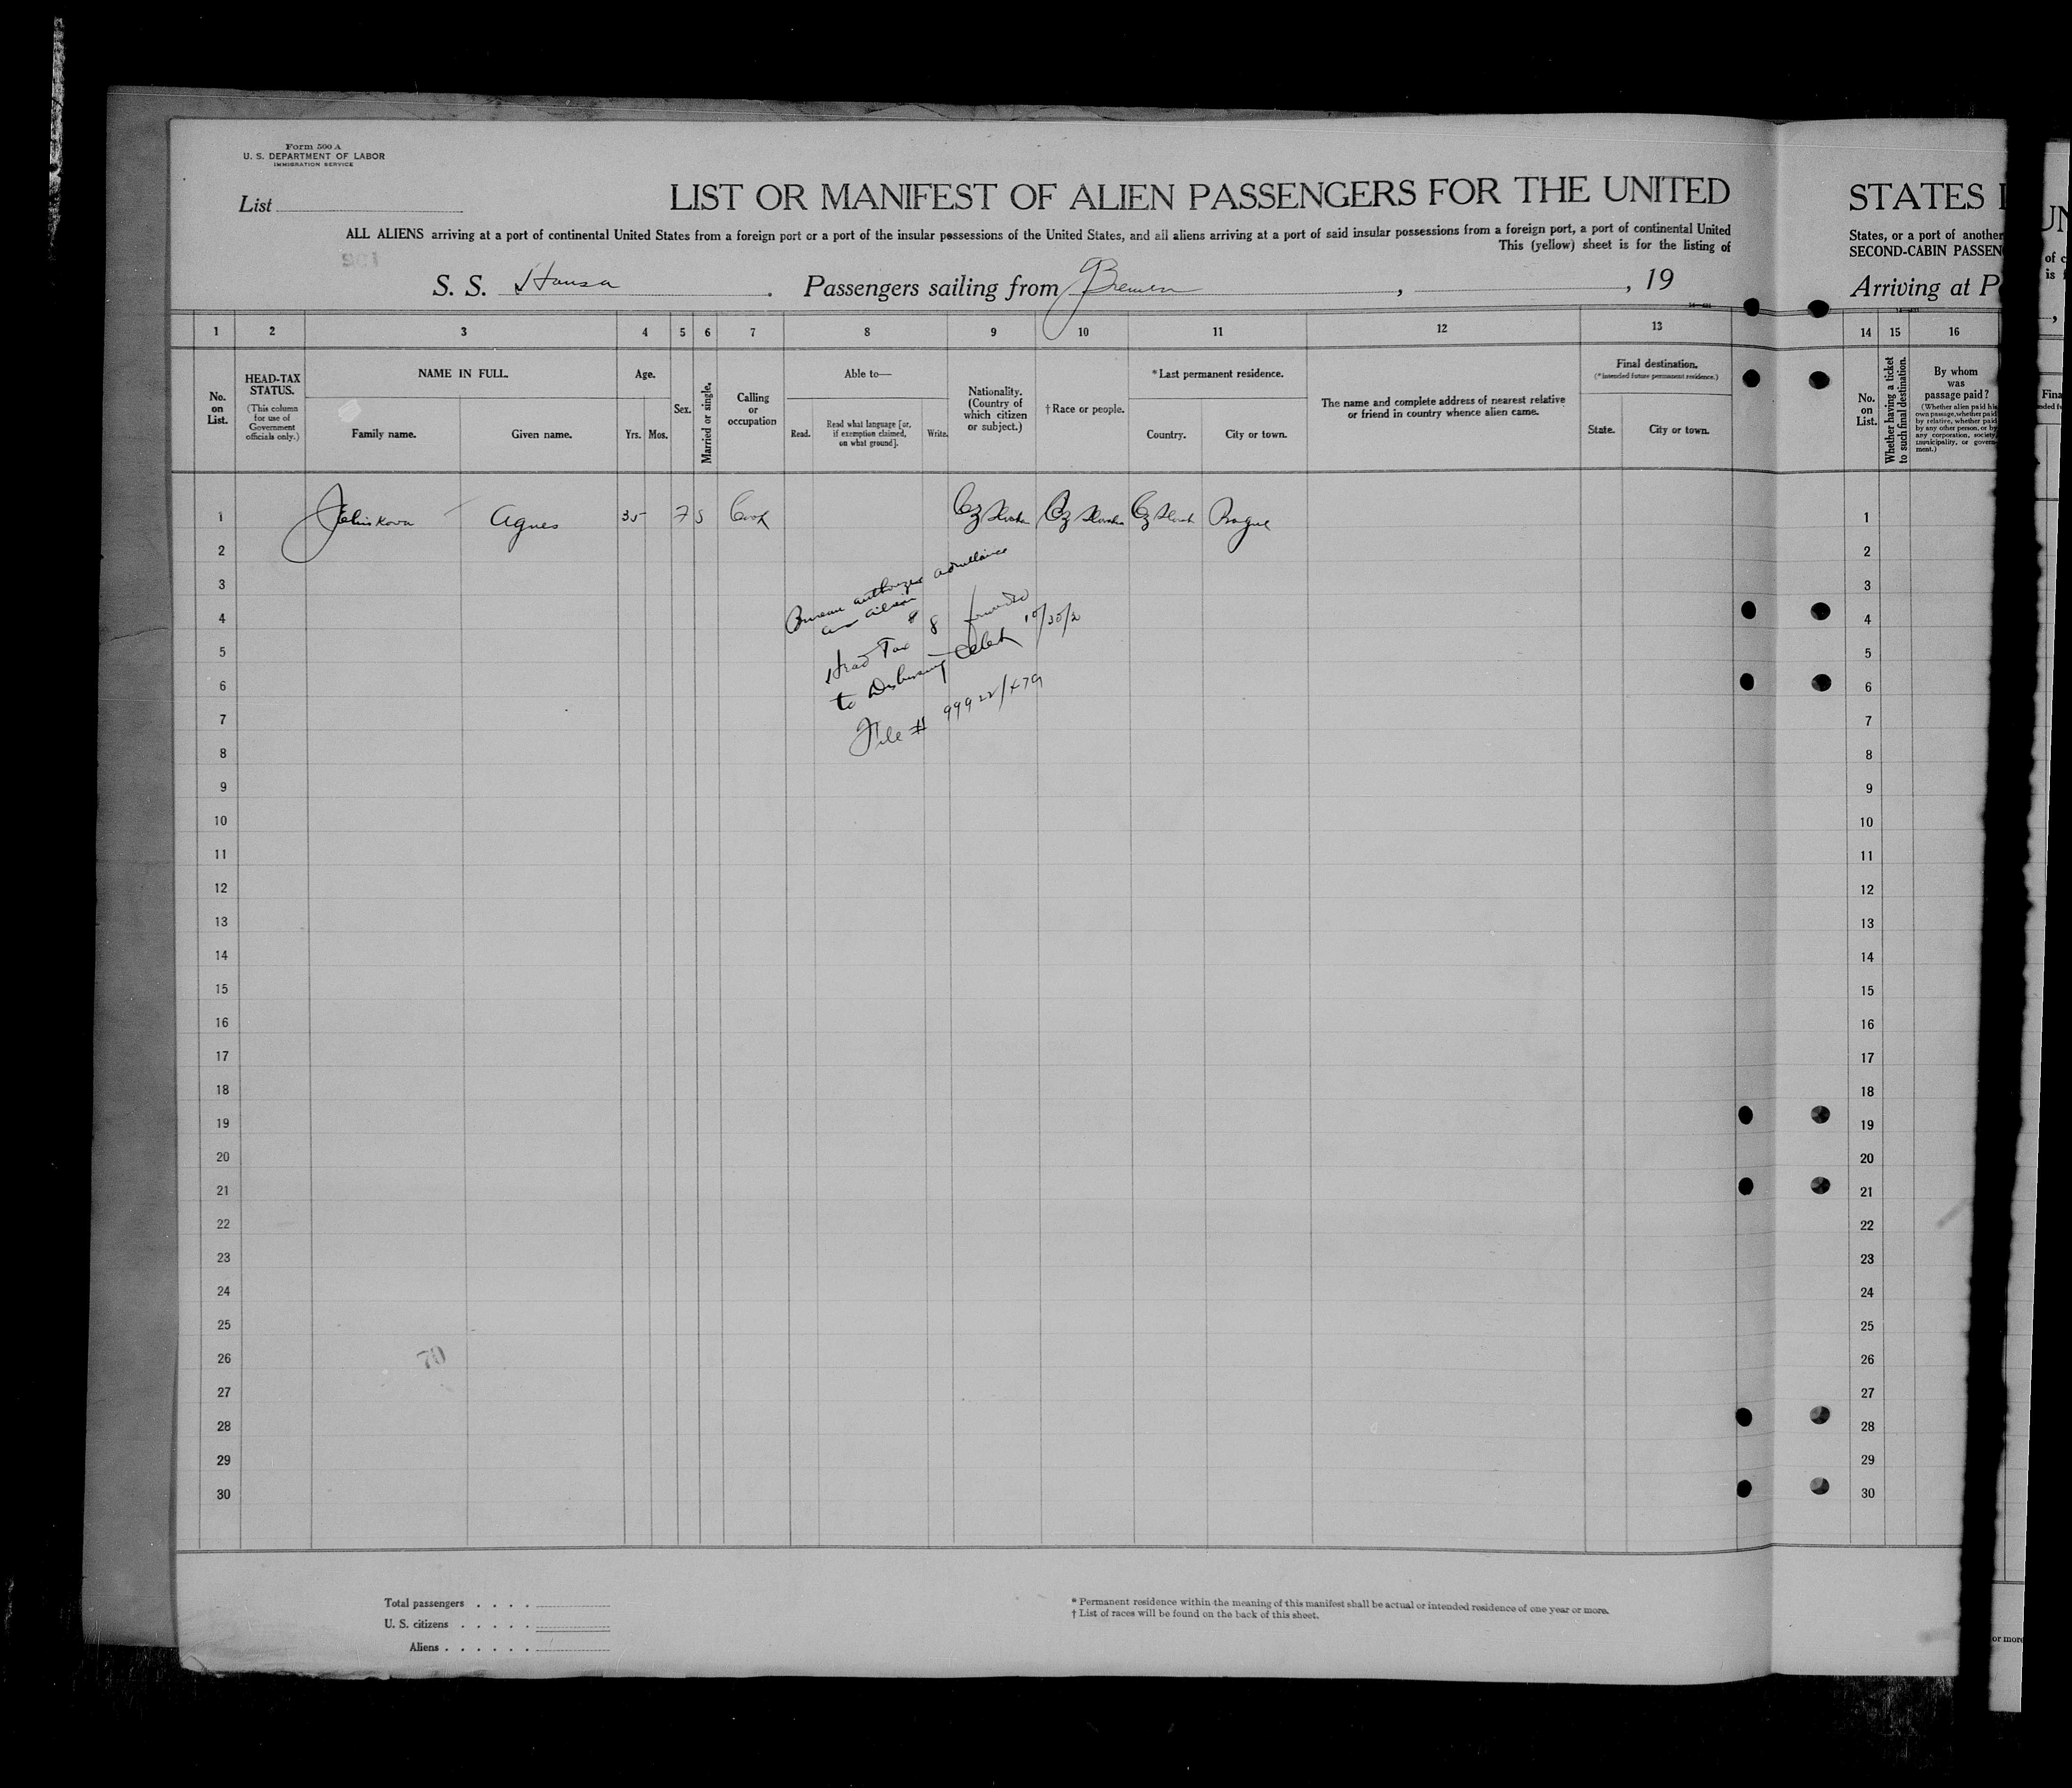 Form 500 A
U. S. DEPARTMENT OF LABOR
IMMIGRATION SERVICE
List
LIST OR MANIFEST OF ALIEN PASSENGERS FOR THE UNITED
ALL ALIENS arriving at a port of continental United States from a foreign port or a port of the insular possessions of the United States, and all aliens arriving at a port of said insular possessions from a foreign port, a port of continental United
This (yellow) sheet is for the listing of
S. S. Hansa. Passengers sailing from Bremen, , 19
1 2 3 4 5 6 7 8 9 10 11 12 13
No. on List.
HEAD-TAX STATUS.
(This column for use of Government officials only.)
NAME IN FULL.
Family name. Given name.
Age.
Yrs. Mos.
Sex.
Married or single.
Calling or occupation
Able to—
Read. Read what language [or, if exemption claimed, on what ground]. Write.
Nationality. (Country of which citizen or subject.)
†Race or people.
*Last permanent residence.
Country. City or town.
The name and complete address of nearest relative or friend in country whence alien came.
Final destination.
(*Intended future permanent residence.)
State. City or town.
1 Agnes 35 F S Cook Cz Slovak Cz Slovak Cz Slovak Prague
2
Bureau authorized admittance
3
4
Head Tax $8
5
to Disbursing Clerk
6
File #
7
8
9
10
11
12
13
14
15
16
17
18
19
20
21
22
23
24
25
26
70
27
28
29
30
Total passengers
U. S. citizens
Aliens
* Permanent residence within the meaning of this manifest shall be actual or intended residence of one year or more.
† List of races will be found on the back of this sheet.
STATES
States, or a port of another
SECOND-CABIN PASSEN
Arriving at P
14 15 16
No. on List.
Whether having a ticket to such final destination.
By whom was passage paid?
(Whether alien paid his own passage, whether paid by relative, whether paid by any other person, or by any corporation, society, municipality, or government.)
1
2
3
4
5
6
7
8
9
10
11
12
13
14
15
16
17
18
19
20
21
22
23
24
25
26
27
28
29
30
UN
of c
is f
Fina
or more